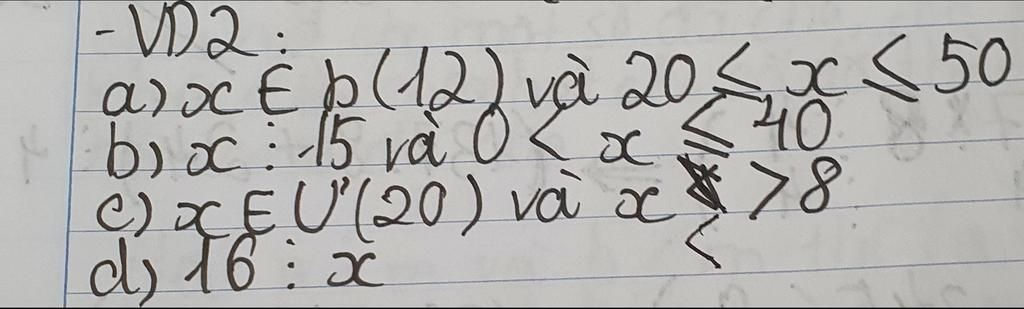 - VD2:
a) x ∈ b(12) và 20 ≤ x ≤ 50
b) x ⋮ 15 và 0 < x ≤ 40
c) x ∈ Ư(20) và x > 8
d) 16 ⋮ x